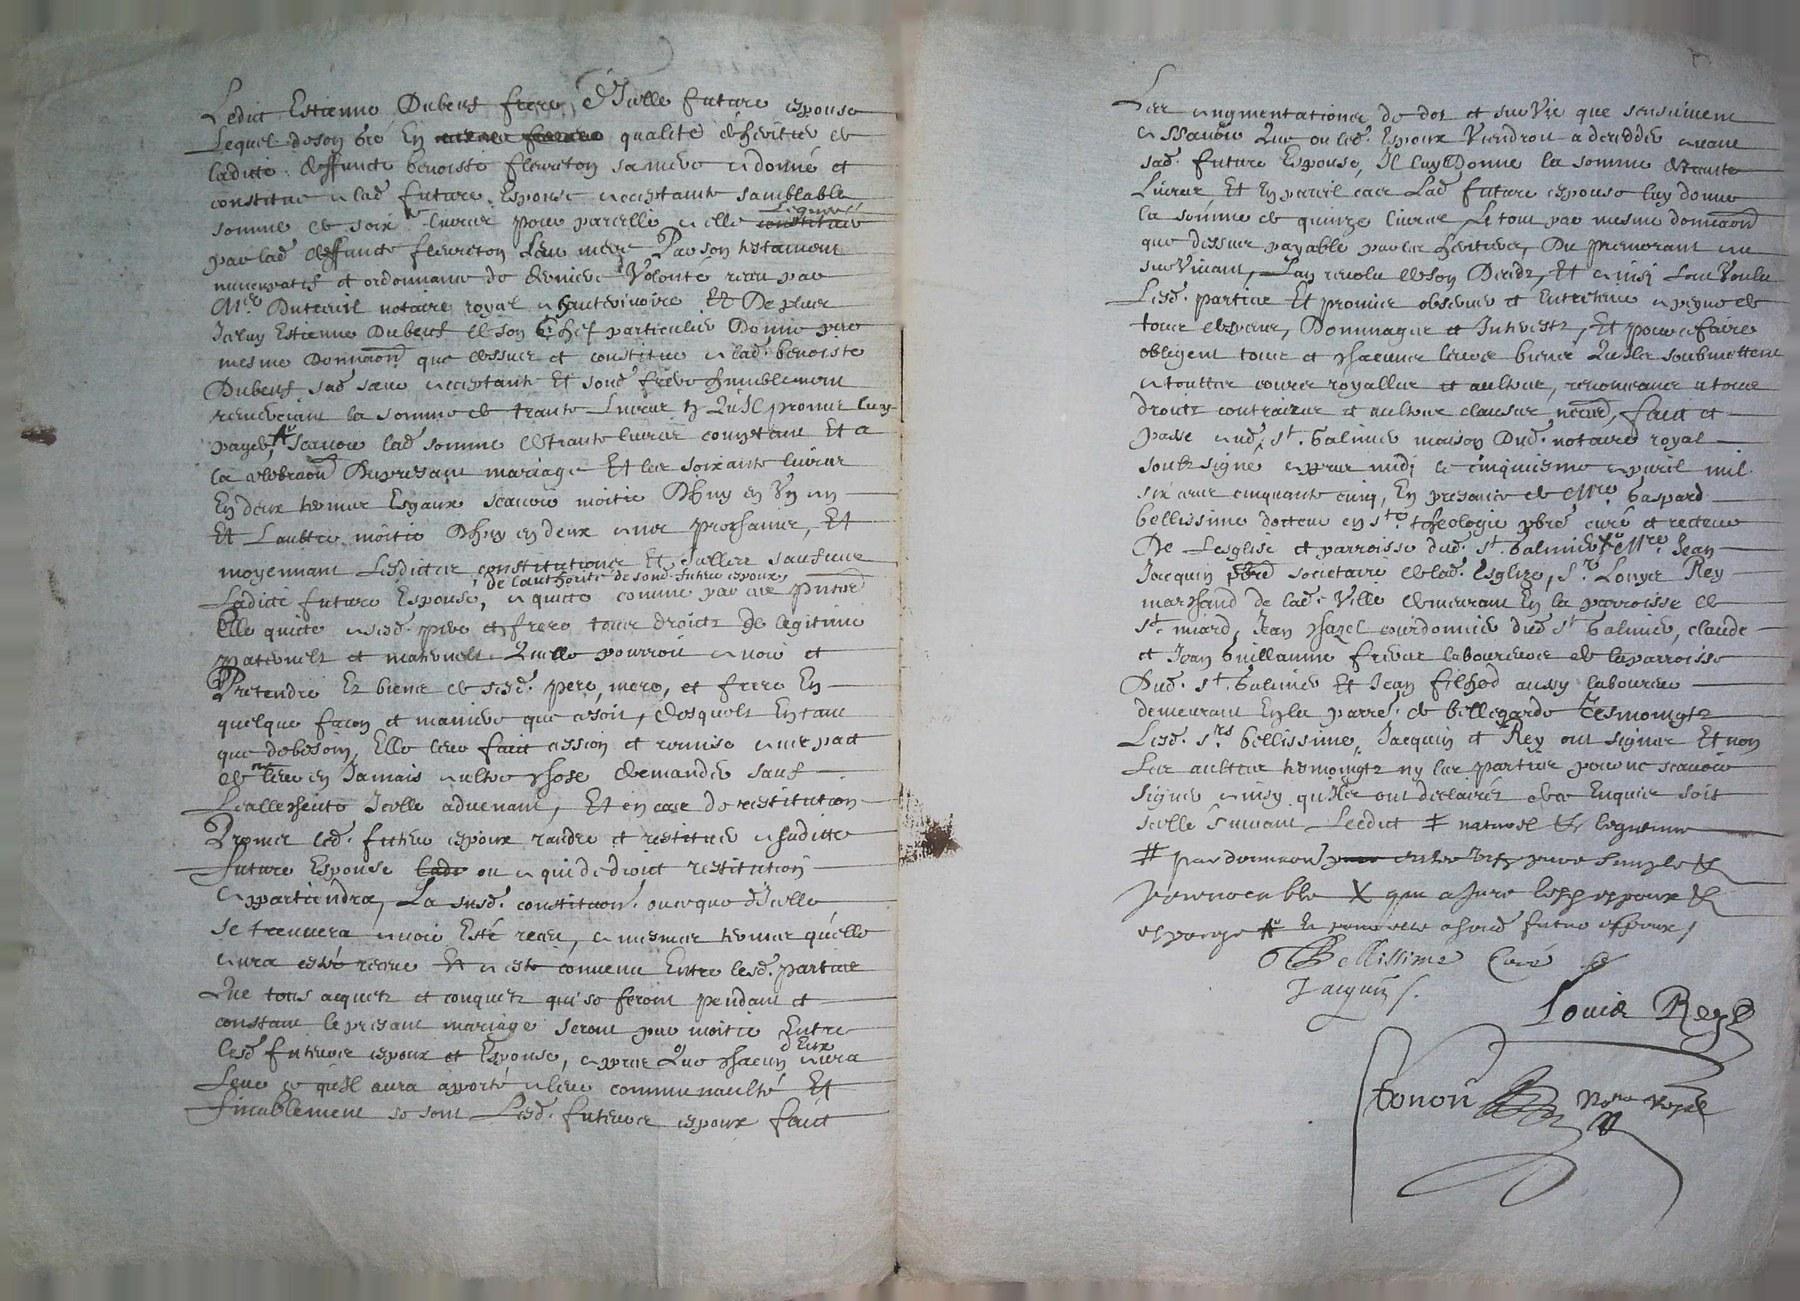 Ledict Estienne Dubeuf frere d'Icelle future espouse
Lequel de son gré En qualité d'heritier de
ladicte deffuncte benoiste fleureton sa mere a donné et
constitue a lad. future Espouse acceptante samblable
somme de soixte livres pour parcelle a elle leguée
par lad. deffuncte fleureton leur mere Par son testament
nuncupatif et ordonnance de derniere Volonte receu par
Mre Duteuil notaire royal a hautevinoire Et De plus
Iceluy Estienne Dubeuf de son Chef particulier Donne par
mesme Donnaon que dessus et constitue a lad. benoiste
Dubeuf sad. sœur acceptante Et sond. frere humblement
remerciant la somme de trante Livres tz Qu'il promet luy
payer, Scavoir lad. somme de trante livres comptant Et a
la celebraon Du presant mariage Et les soixante livres
En deux termes Esgaux scavoir moitié D'huy en Un an
Et Laultre moitié D'huy en deux ans prochains, Et
moyennant Lesdictes constitutions Et Icelles saufues
de l'authorité de sond. futur espoux,
Ladicte future Espouse, a quitté comme par ces pntes
Elle quicte ausd. pere et frere tous droictz de legitime
paternelz et maternelz Quelle pourroit avoir et
Pretendre Ez biens de sesd. pere, mere, et frere En
quelque facon et maniere que ce soit, desquelz En tant
que de besoin, Elle leur faict cession et remise avec pact
de ne leur en Jamais aultre chose demander sauf
Leallescheute Icelle advenant, Et en cas de restitution
Promet led. futur espoux randre et restituer a sadicte
future Espouse ou a qui de droict restitution
apartiendra, La susd. constitution. ou ce que d'Icelle
se treuvera avoir Esté receu, a mesmes termes quelle
aura esté receue Et a esté convenu Entre lesd. parties
Que tous acquetz et conquetz qui se feront pendant et
constant le presant mariage seront par moitié Entre
lesd. futurs espoux et Espouse, apres Que chacun d'Eux aura
Leue ce qu'Il aura aporté a leur communaulté Et
finablement se sont Lesd. futurs espoux faict
Les augmentations de dot et survie que sensuivent
a Scavoir Que ou led. Espoux Viendroit a decedder avant
sad. future Espouse, Il luy Donne la somme de trante
Livres Et En pareil cas Lad. future espouse luy donne
la somme de quinze livres Le tout par mesme donnaon
que dessus payable par les heritiers, Du premorant au
survivant, Lan revolu de son Decedz, Et ainsi Lont Voulu
Lesd. parties Et promis observer et Entretenir a peyne de
tous despens, Dommages et Interestz, Et pour ce faire
obligent tous et chacuns leurs biens Qu'ilz soubmettent
a touttes cours royalles et aultres, renoncants a tous
droictz contraires et aultres clauses necres, faict et
passé aud. St. Galmier maison Dud. notaire royal
soubz signé apres midi le cinquiesme apvril mil
six cens cinquante cinq, En presance de Mre Gaspard
bellissime docteur en Ste theologie pbre curé et recteur
De Lesglise et parroisse dud. St. Galmier Mre Jean
Jacquin pbre societaire de lad. Esglize, Sr. Louys Rey
marchand de lad. Ville demeurant En la parroisse de
St. miard, Jean chazel courdonnier dud. St Galmier, claude
et Jean Guillaume freres laboureurs de la parroisse
Dud. St. Galmier Et Jean filhod aussy laboureur
demeurant En la parre. de bellegarde tesmoingtz
Lesd. Srs bellissime, Jacquin et Rey ont signés Et non
Les aultres tesmoingtz ny les parties pour ne scavoir
signer ainsy qu'ilz ont declairéz de ce Enquis soit
scelle suivant Leedict # naturel & legitime
# par donnaon pure simple &
irrevocable X que a
espouze
Bellissime Curé
Jacquin
Louis Rey
Tonon Notre Royal